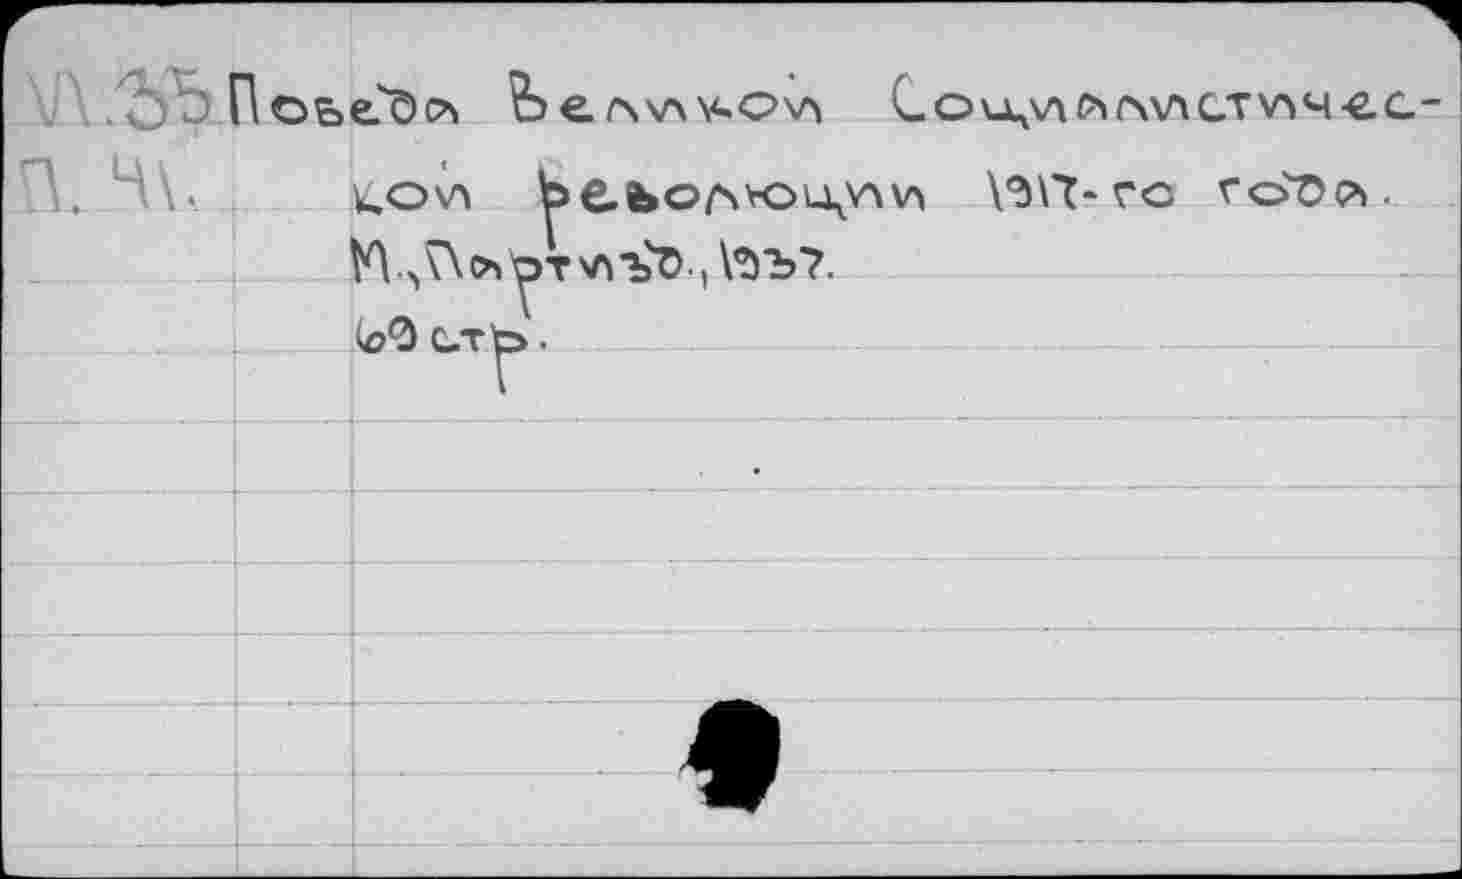 И.ЗБ Победа Великой Социалистичес-
П. 41. кой Революции 1917-го года.
М., Партизд., 1937.
69 стр.